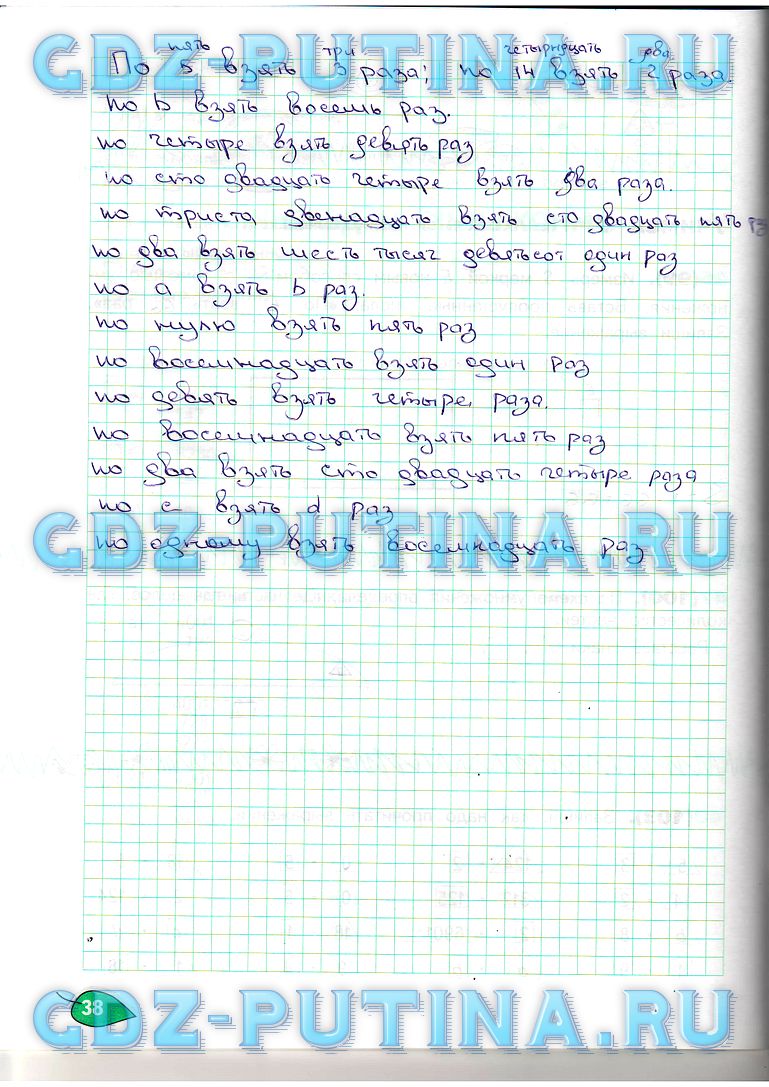 GDZ-PUTINA.RU
пять три четырнадцать два
По 5 взять 3 раза; по 14 взять 2 раза.
по b взять восемь раз.
по четыре взять девять раз
по сто двадцать четыре взять два раза.
по триста двенадцать взять сто двадцать пять раз
по два взять шесть тысяч девятьсот один раз
по a взять b раз.
по нулю взять пять раз
по восемнадцать взять один раз
по девять взять четыре раза.
по восемнадцать взять пять раз
по два взять сто двадцать четыре раза
по c взять d раз
GDZ-PUTINA.RU
по одному взять восемнадцать раз
38
GDZ-PUTINA.RU